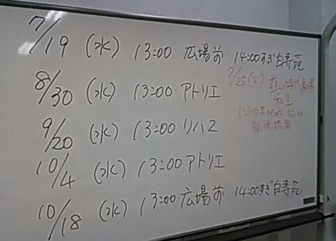 7/19 (水) 13:00 広場前 14:00すぎ白寿苑
8/30 (水) 13:00 アトリエ
9/20 (水) 13:00 リハ2
10/4 (水) 13:00 アトリエ
10/18 (水) 13:00 広場前 14:00すぎ白寿苑
7/25(火)